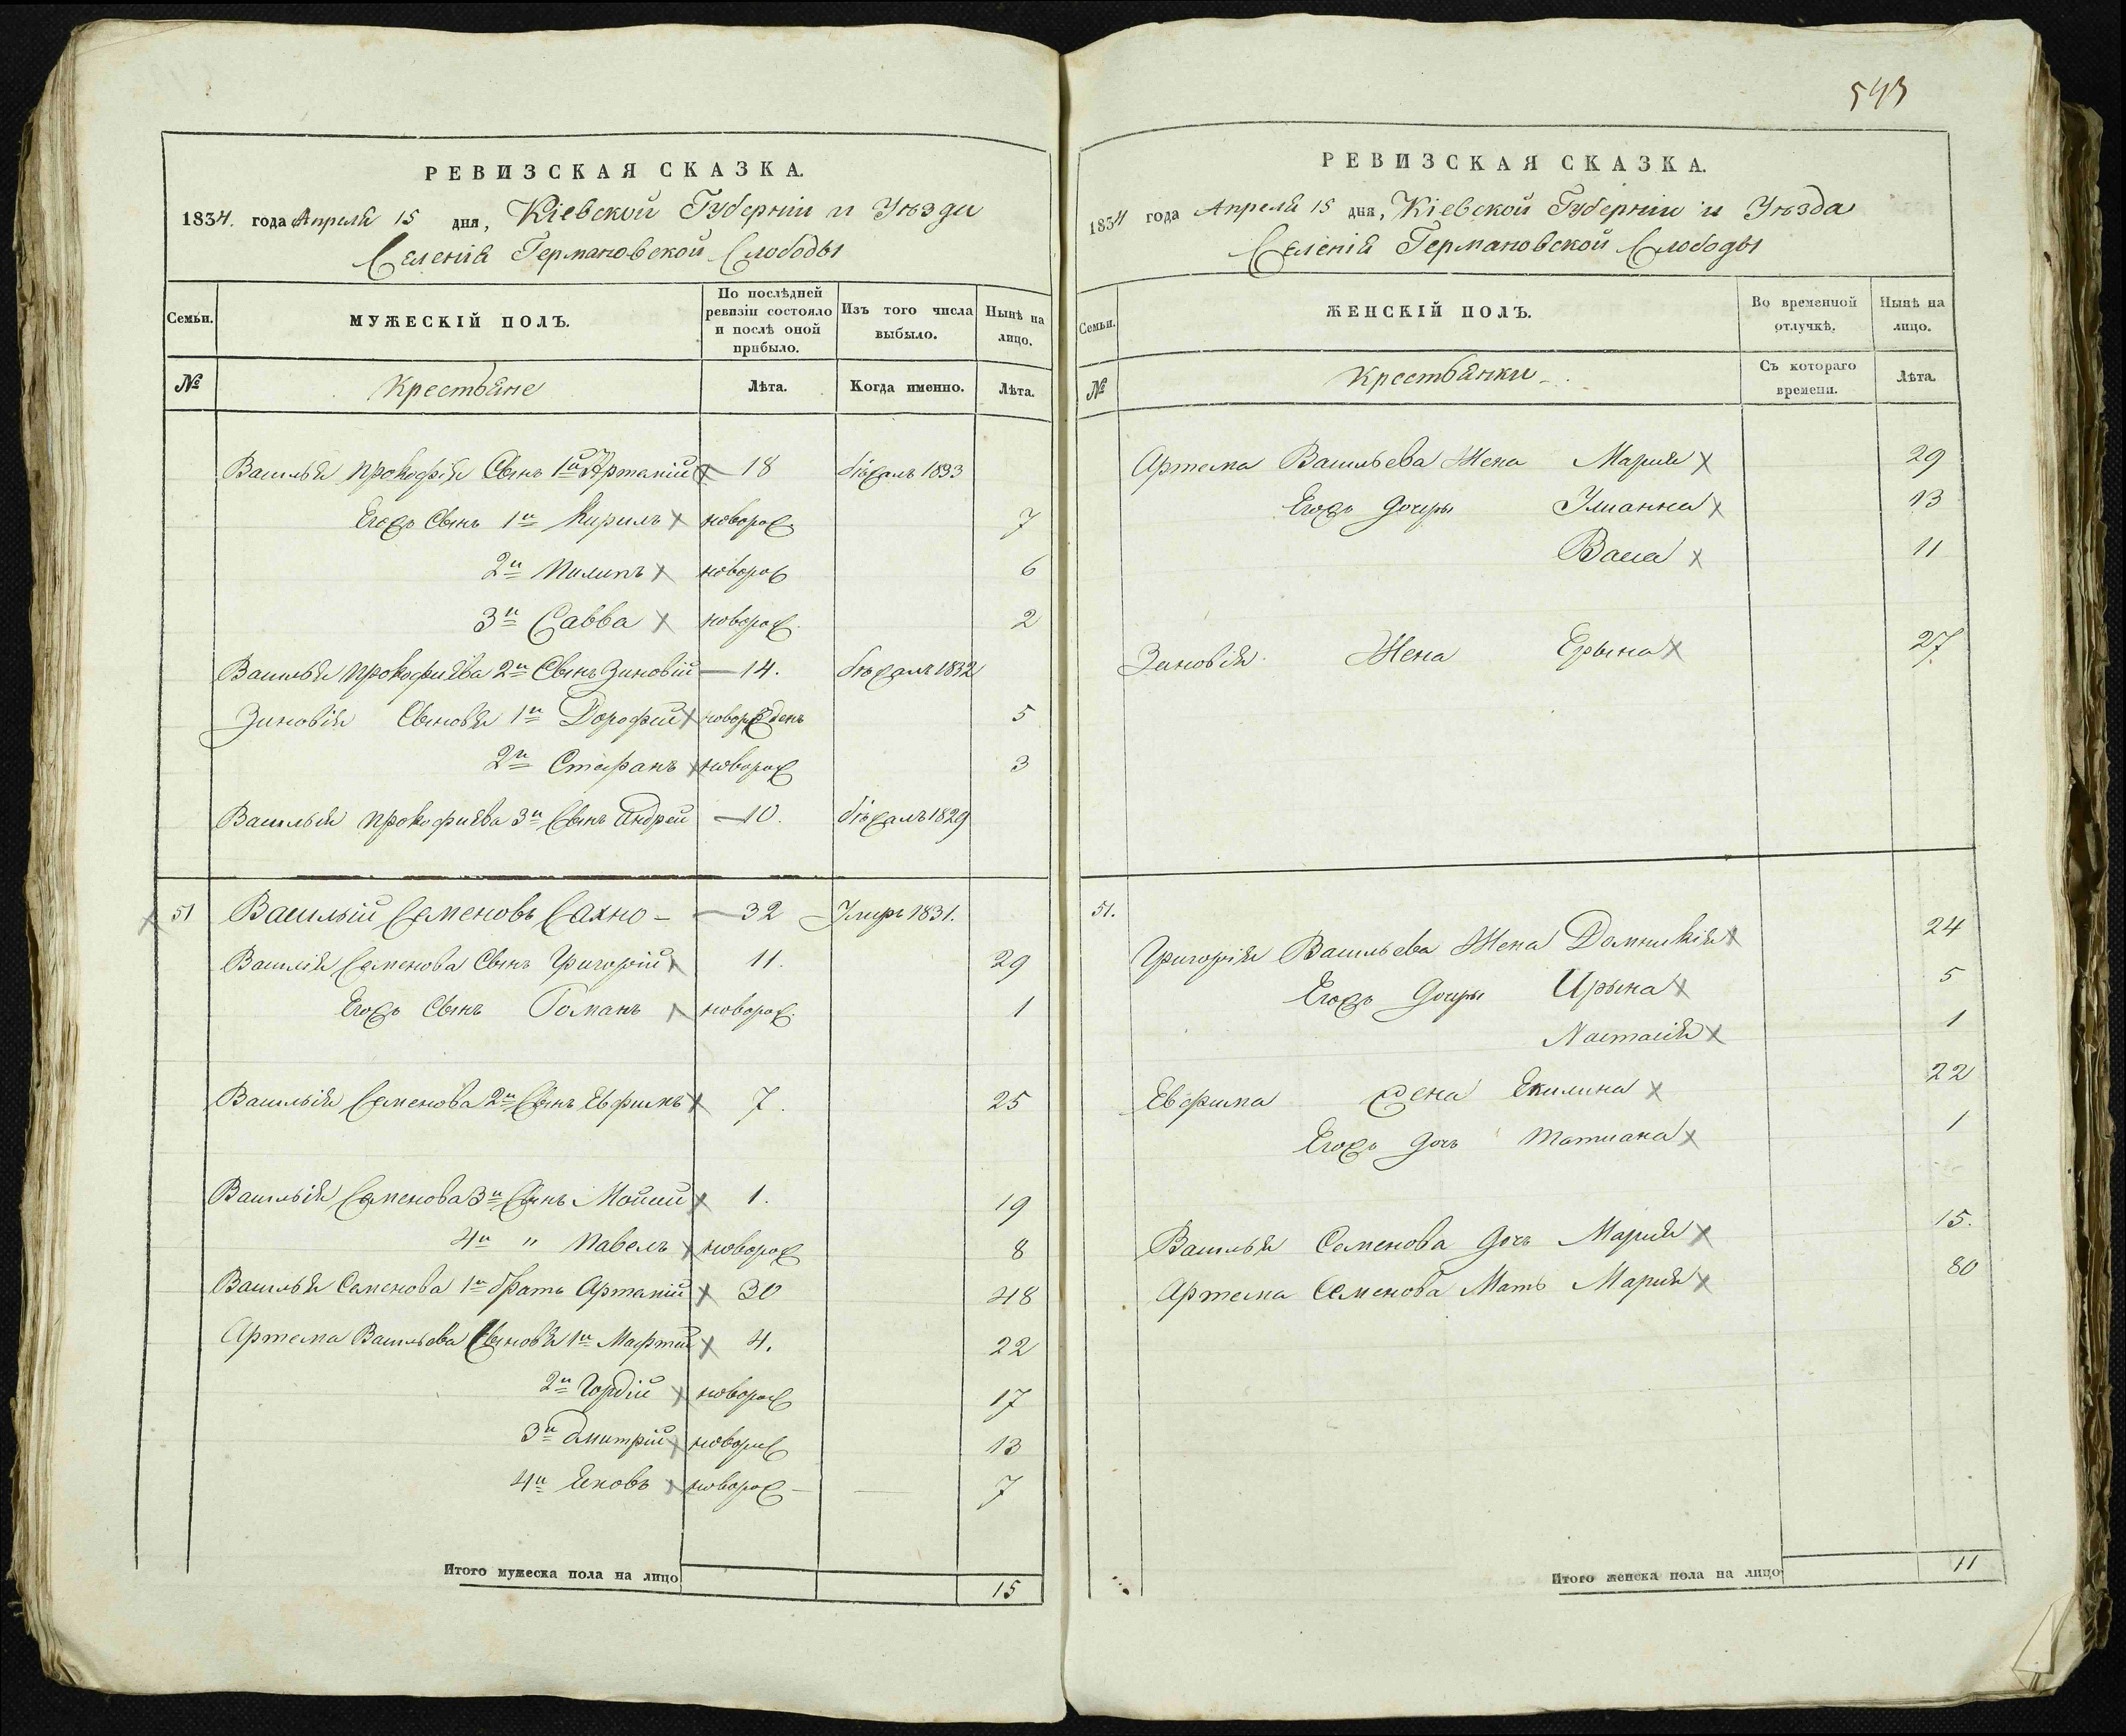 РЕВИЗСКАЯ СКАЗКА.
1834. года Апреля 15 дня, Кіевской Губерніи и Уѣзда
Селенія Германовской Слободы
Семьи.
МУЖЕСКІЙ ПОЛЪ.
По послѣдней ревизіи состояло и послѣ оной прибыло.
Изъ того числа выбыло.
Нынѣ на лицо.
№
Крестьяне
Лѣта.
Когда именно.
Лѣта.
Василья Прокофія Сынъ 1й Артемій 18 бѣжалъ 1833
Егожъ Сынъ 1й Кирилъ новорож. 7
2й Пилипъ новорож 6
3й Савва новорож. 2
Василья Прокофіева 2й Сынъ Зиновій 14. бѣжалъ 1832
Зиновія Сыновья 1й Дорофей новорожденъ 5
2й Стефанъ новорож 3
Василья Прокофіева 3й Сынъ Андрей 10. бѣжалъ 1829
51 Василий Семеновъ Сахно 32 Умеръ 1831.
Василія Семенова Сынъ Григорій 11. 29
Егожъ Сынъ Романъ новорож. 1
Василья Семенова 2й Сынъ Евфимъ 7. 25
Василья Семенова 3й Сынъ Мойсей 1. 19
4й " Павелъ новорож 8
Василья Семенова 1й братъ Артемій 30 48
Артема Васильева Сыновья 1й Мафтей 4. 22
2й Гордій новорож 17
3й Дмитрій новорож 13
4й Яковъ новорож 7
Итого мужеска пола на лицо 15
543
РЕВИЗСКАЯ СКАЗКА.
1834 года Апреля 15 дня, Кіевской Губерніи и Уѣзда
Селенія Германовской Слободы
Семьи.
ЖЕНСКІЙ ПОЛЪ.
Во временной отлучкѣ.
Нынѣ на лицо.
№
Крестьянки
Съ котораго времени.
Лѣта.
Артема Васильева Жена Марія 29
Егожъ дочеры Улианна 13
Васса 11
Зиновія Жена Ерына 27
51.
Григорія Васильева Жена Домникія 24
Егожъ дочеры Ирына 5
Настасія 1
Евфима жена Екилина 22
Егожъ дочь Татиана 1
Василья Семенова дочь Марія 15.
Артема Семенова Мать Марія 80
Итого женска пола на лицо 11